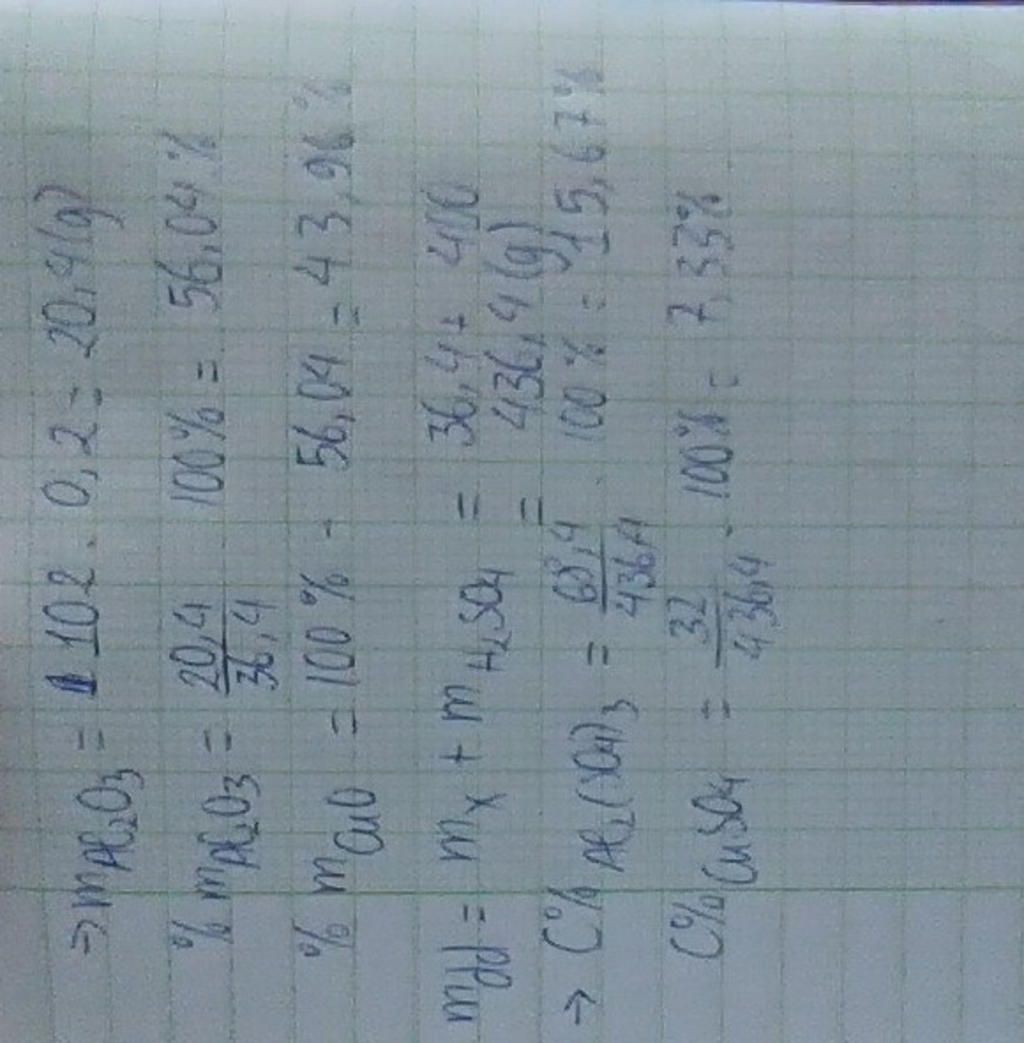 → mAl₂O₃ = 102 . 0,2 = 20,4(g)
% mAl₂O₃ = 20,4/36,4 . 100% = 56,04%
% mCuO = 100% - 56,04 = 43,96%
mdd = mX + mH₂SO₄ = 36,4 + 400
= 436,4(g)
→ C% Al₂(SO₄)₃ = 68,4/436,4 . 100% = 15,67%
C% CuSO₄ = 32/436,4 . 100% = 7,33%